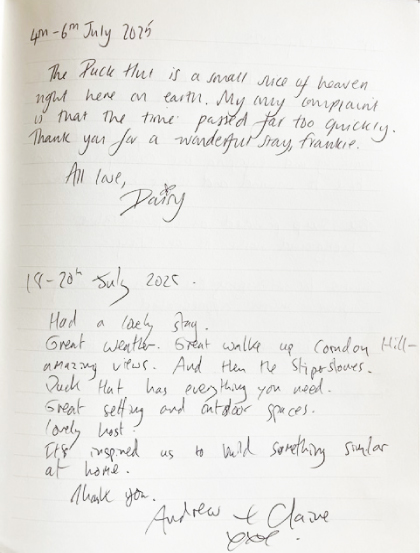 4th - 6th July 2025
The Duck Hut is a small slice of heaven
right here on earth. My only complaint
is that the time passed far too quickly.
Thank you for a wonderful stay, Frankie.
All love,
Daisy
x
18-20th July 2025.
Had a lovely stay.
Great weather. Great walks up Corndon Hill-
amazing views. And then the Stiperstones.
Duck Hut has everything you need.
Great setting and outdoor spaces.
lovely host.
It's inspired us to build something similar
at home.
Thank you.
Andrew & Claire
xxx